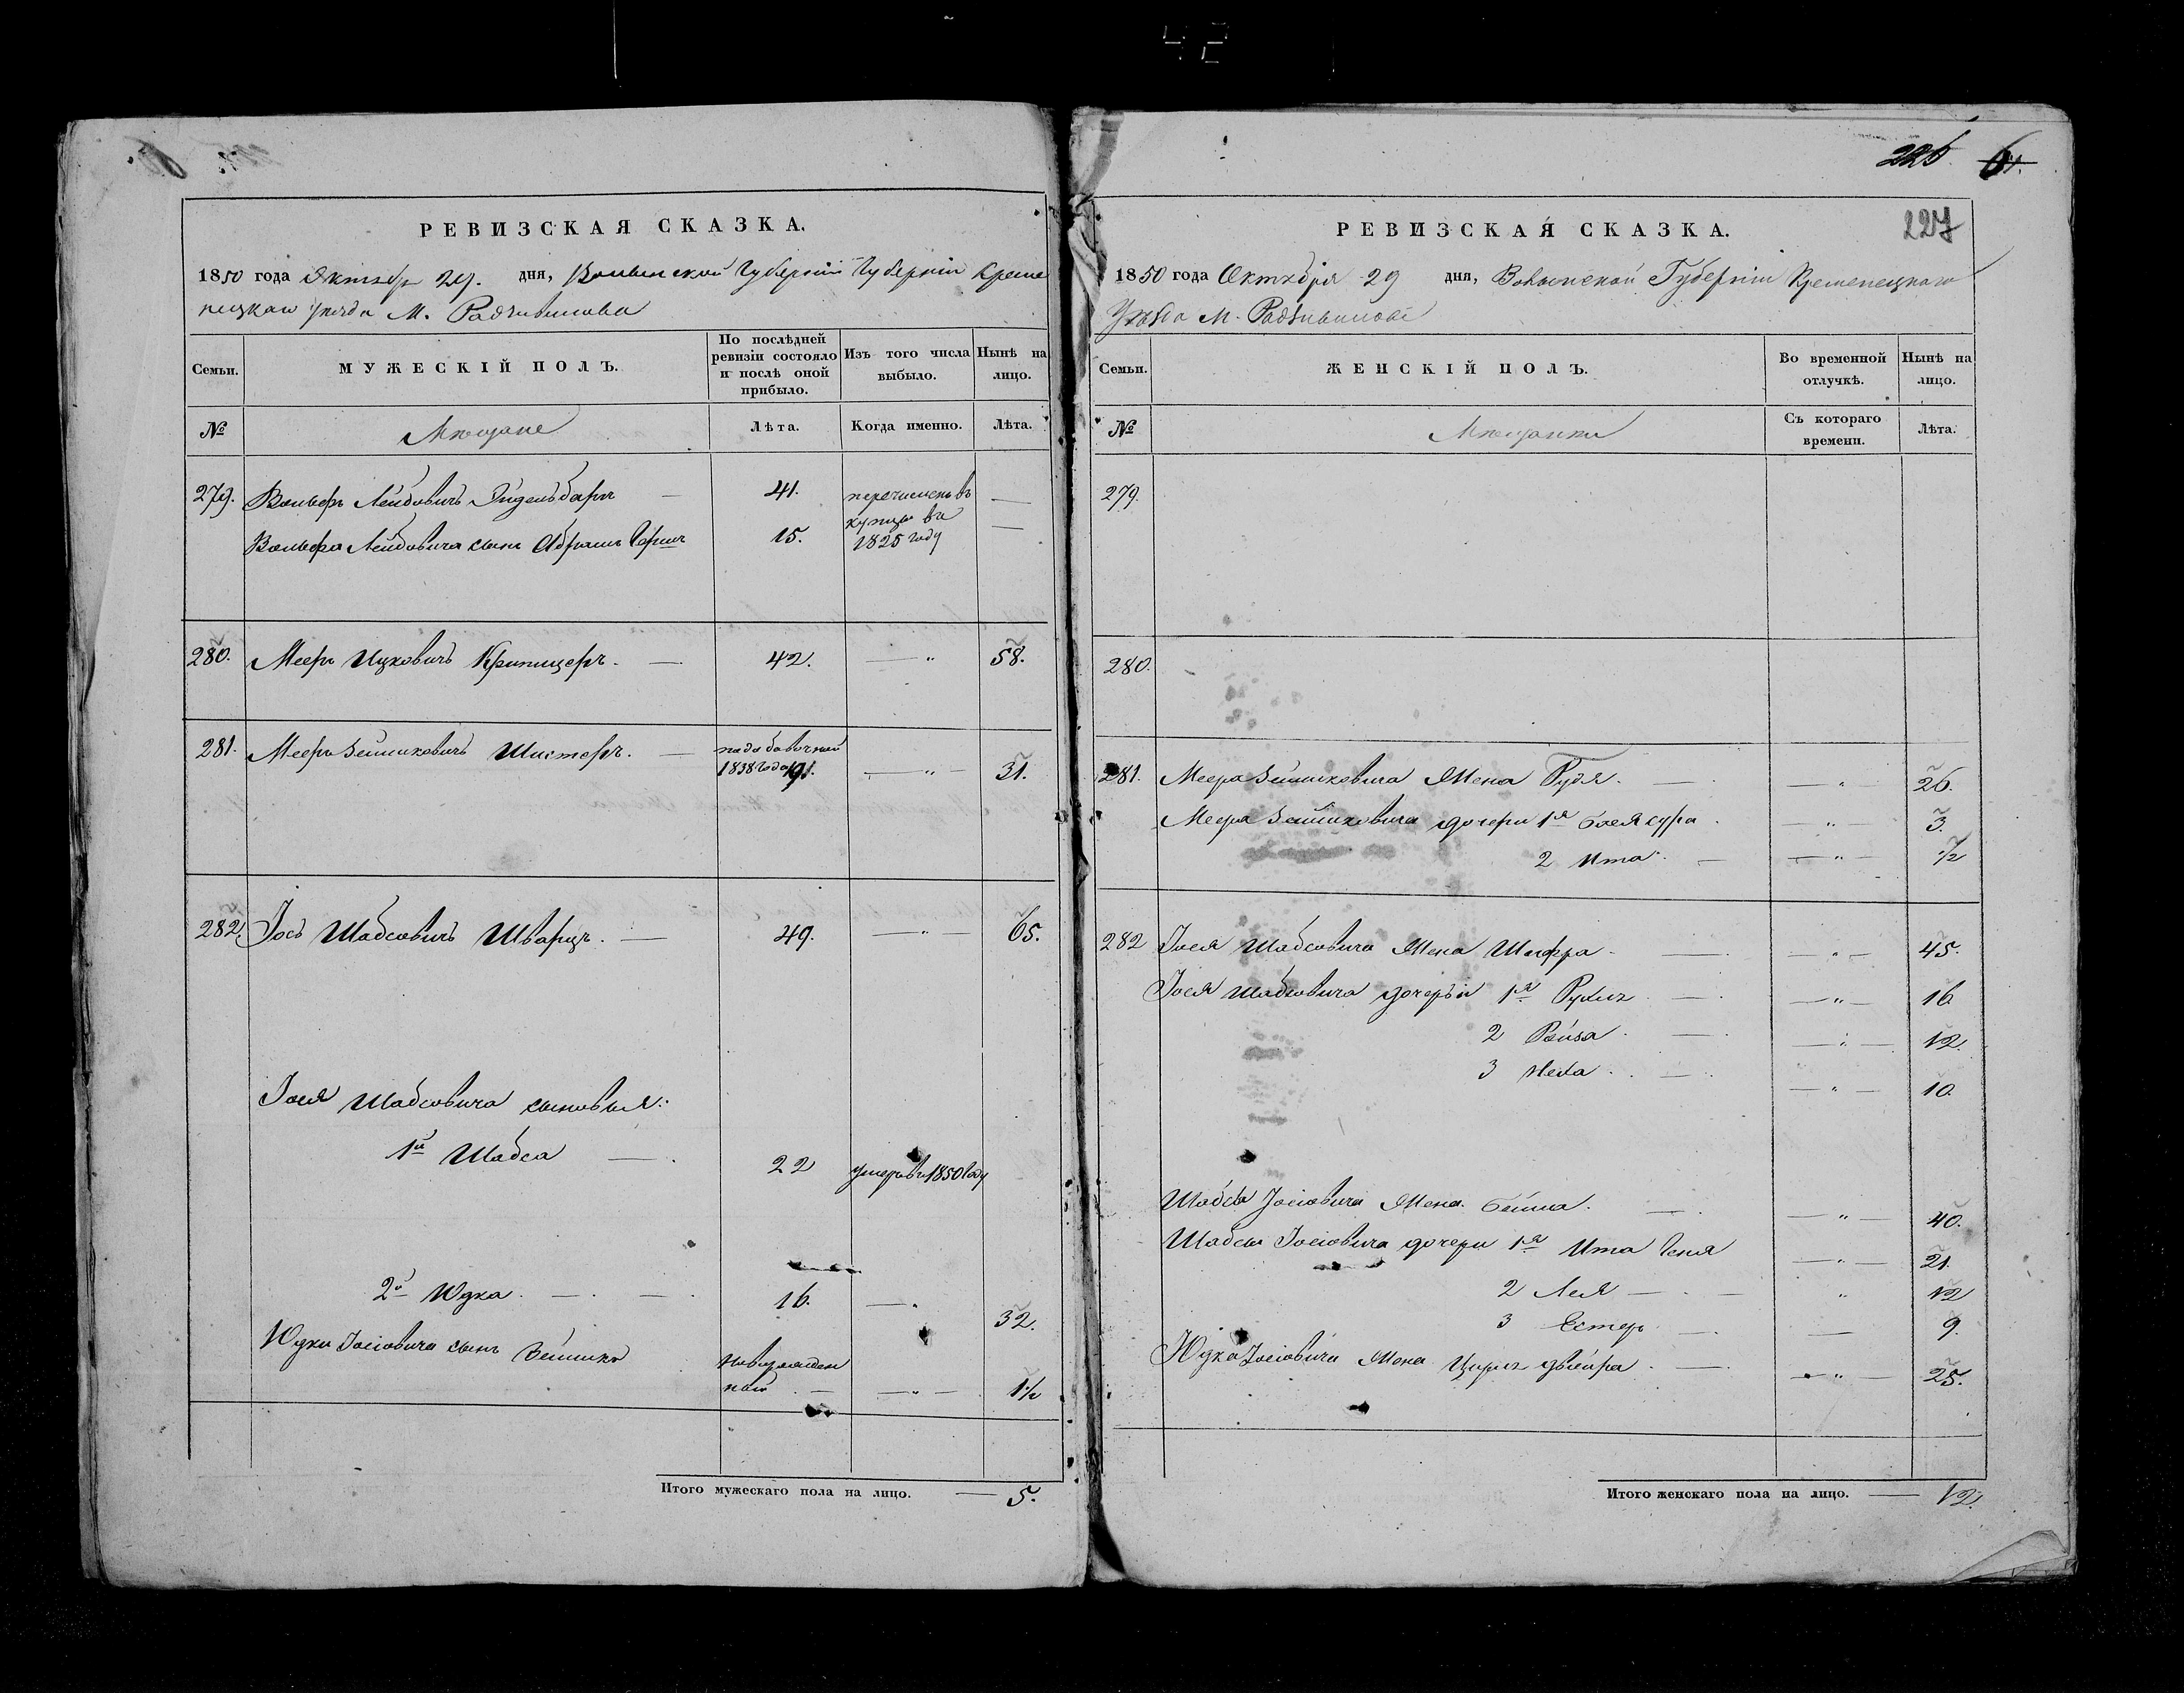 42
226 61.
РЕВИЗСКАЯ СКАЗКА.
1850 года Октябр 29. дня, Волынской Губерніи Губерніи Креме
нецкаго уезда М. Радзивилова
Семьи. МУЖЕСКІЙ ПОЛЪ. По послѣдней ревизіи состояло и послѣ оной прибыло. Изъ того числа выбыло. Нынѣ на лицо.
№ Мещане Лѣта. Когда именно. Лѣта.
279. Вольфъ Лейбовичъ 41. перечисленъ въ —
Вольфа Лейбовича сынъ Абрамъ Гершъ 15. купцы въ —
1825 году
280. Мееръ Ицковичъ 42. — " 58.
281. Мееръ Зейликовичъ Шистеръ. — 
1838 года 19. — " — 31.
282. Іось Шабсовичъ Шварцъ. — 49. — " — 65.
Іося Шабсовича сыновья:
1й Шабса — 22 умеръ въ 1850 году
2й Юдка. — . — . 16. — " 32.
Юдки Іосіовича сынъ Зейликъ новорожден
ный — — " — 1½
Итого мужескаго пола на лицо. — 5.
РЕВИЗСКАЯ СКАЗКА. 227
1850 года Октября 29 дня, Волынской Губерніи Кременецкаго
Уезда М. Радзивилове
Семьи. ЖЕНСКІЙ ПОЛЪ. Во временной отлучкѣ. Нынѣ на лицо.
№ Мещанки Съ котораго времени. Лѣта.
279.
280.
281. Меера Зейликовича Жена Рудя. — — " — 26.
Меера Зейликовича дочери 1я Бася сура — " — 3.
2 Ита. — — " — ½
282 Іося Шабсовича Жена Шифра. — — " — 45.
Іося Шабсовича дочерьи 1я Рухля — — " — 16
2 Рейза. — — " — 12.
3 Неха. — — " — 10.
Шабсы Іосіовича Жена Бейла. — — " — 40.
Шабсы Іосіовича дочери 1я Ита Геня — " — 21.
2 Лея — . — " 12
3 Естеръ — — 9.
Юдка Іосіовича Жена двейра. — — " — 25.
Итого женскаго пола на лицо. — 12.